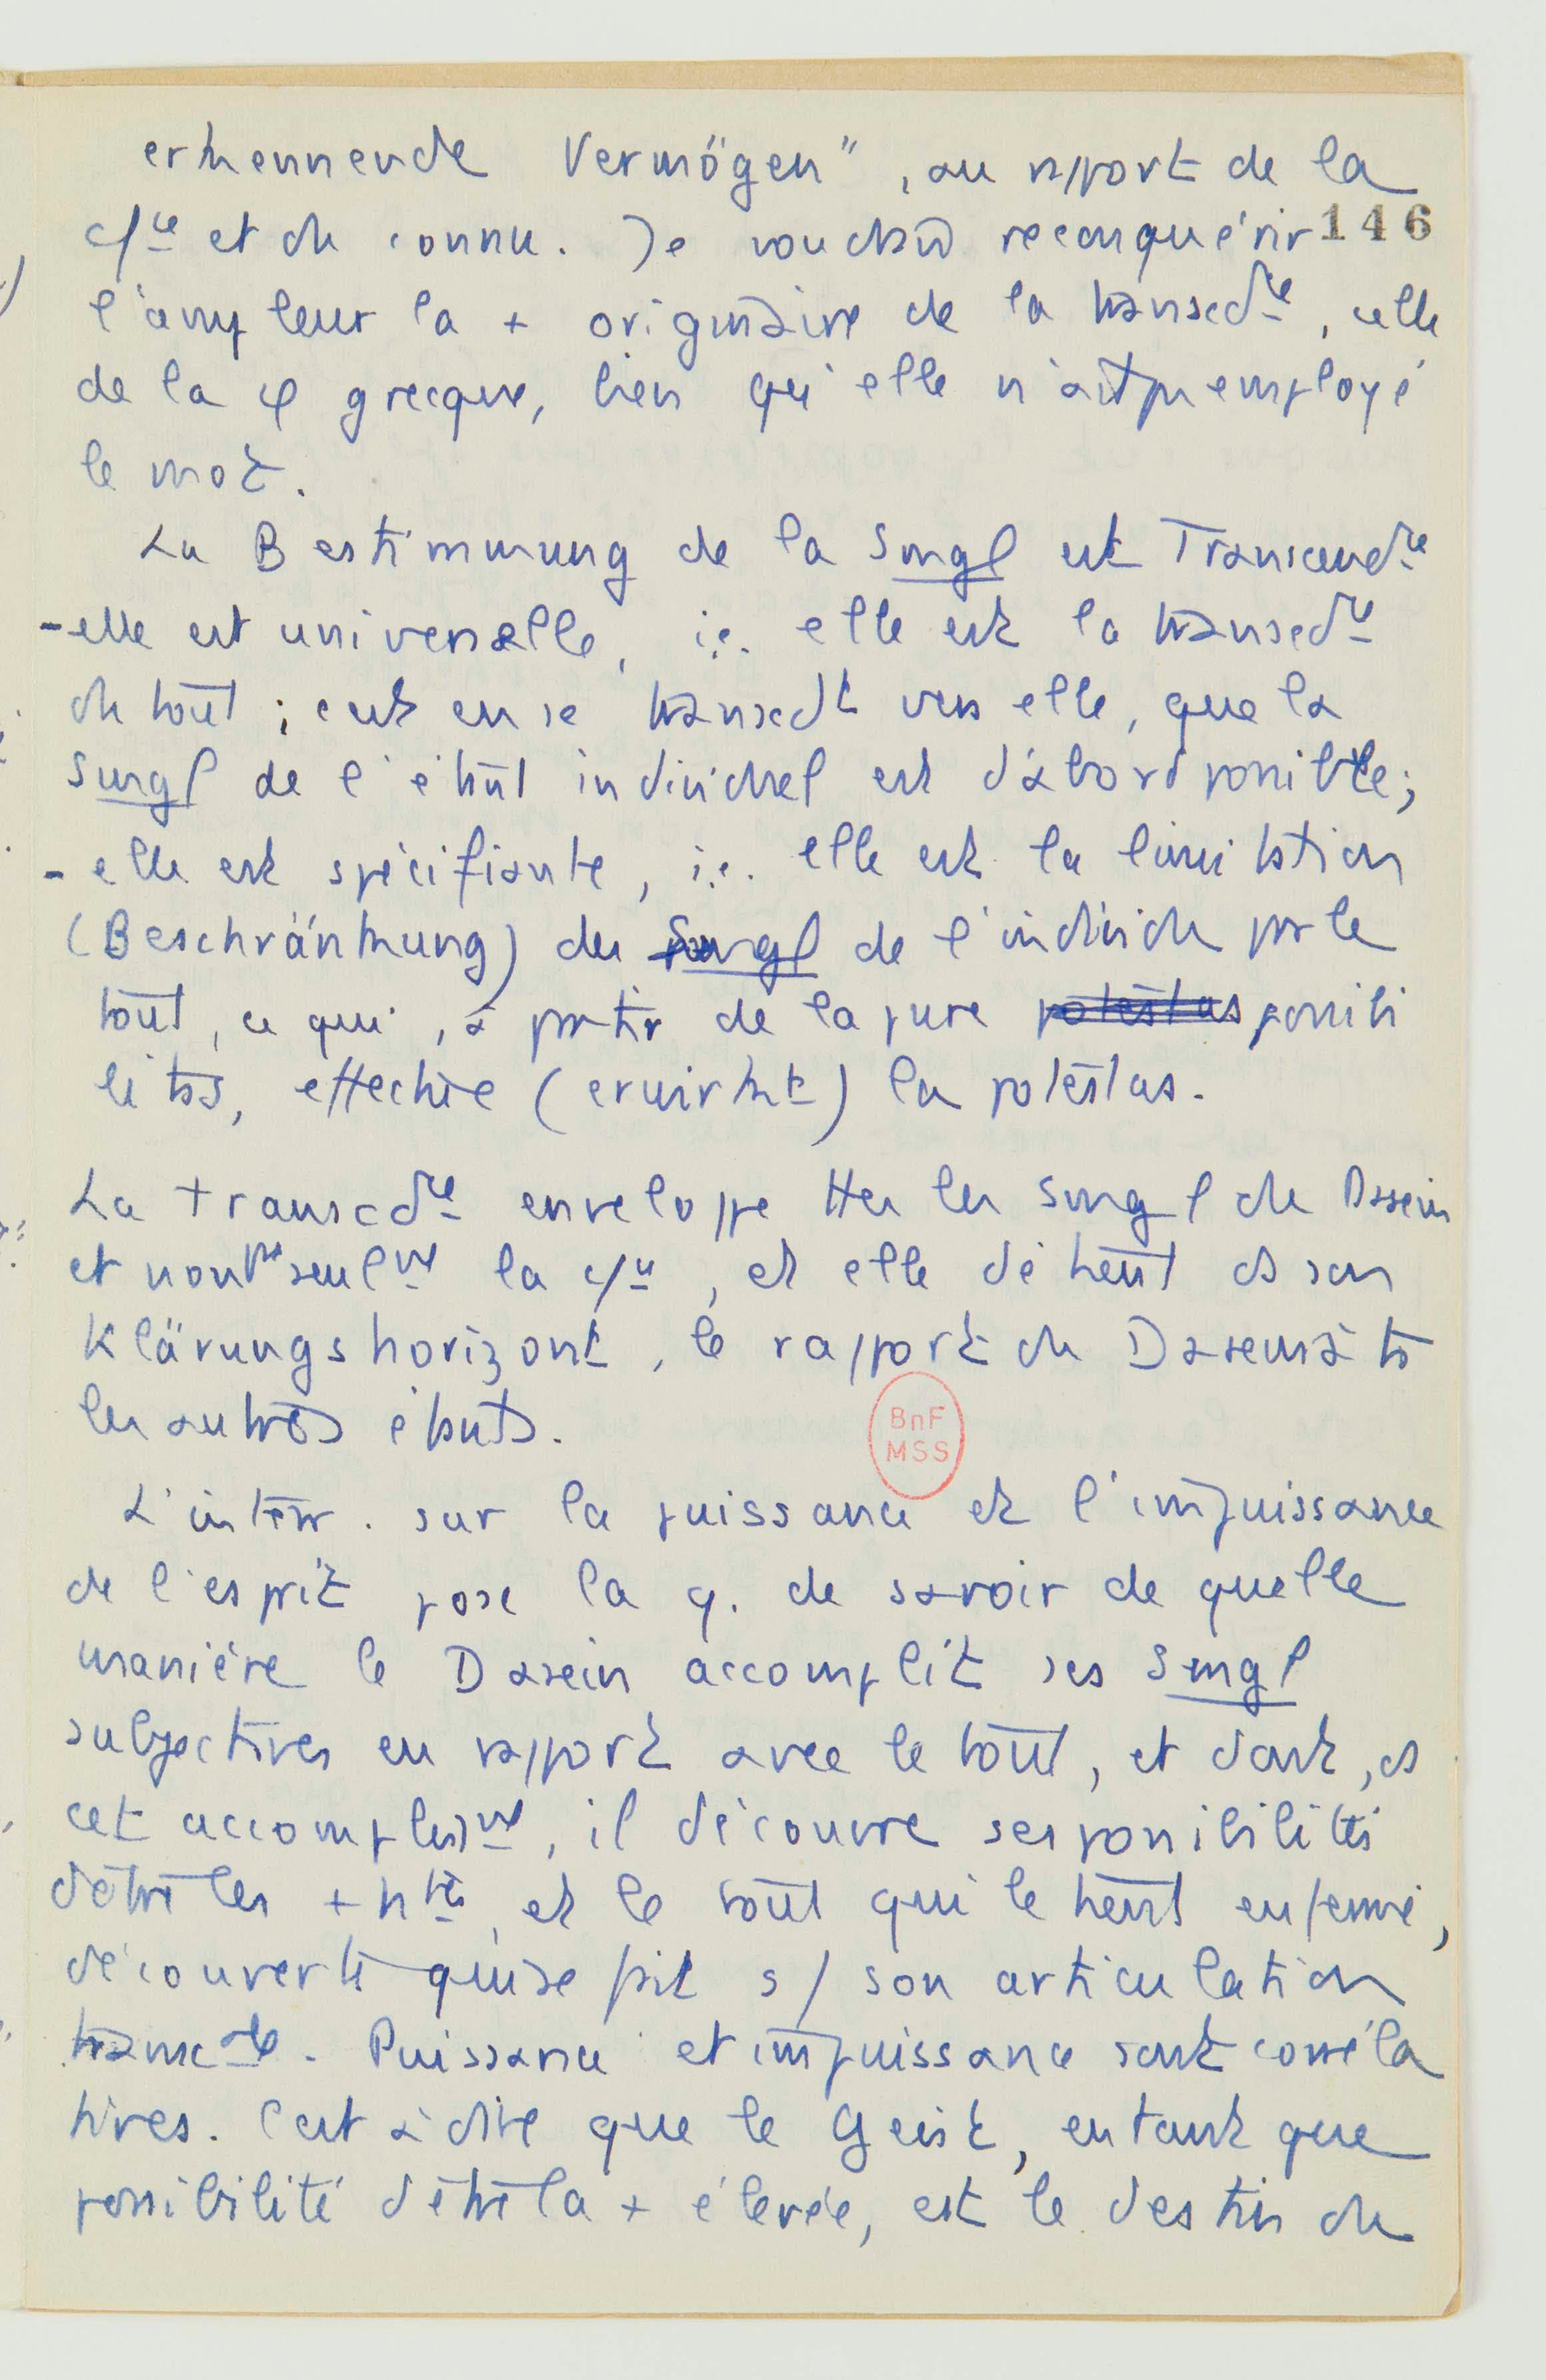 erkennende Vermögen", au rapport de la
c/ce et du connu. Je voudrais reconquérir 146
l'ampleur la + originaire de la transcdce, celle
de la φ grecque, bien qu'elle n'ait pas employé
le mot.
La Bestimmung de la Smgl est Transcendce
- elle est universelle, i.e. elle est la transcdce
du tout ; c'est en se transcdt vers elle, que la
Smgl de l'étant individuel est d'abord possible;
- elle est spécifiante, i.e. elle est la limitation
(Beschränkung) des Smgl de l'individu par le
tout, ce qui, à partir de la pure potestas possibi
litas, effective (erwirkt) la potestas.
La transcdce enveloppe ttes les Smgl du Dasein
et non pas seulmt la c/ce, et elle détient ds son
Klärungshorizont, le rapport du Dasein à ts
les autres étants.
L'interr. sur la puissance et l'impuissance
de l'esprit pose la q. de savoir de quelle
manière le Dasein accomplit ses Smgl
subjectives en rapport avec le tout, et dont, ds
cet accomplissmt, il découvre ses possibilités
d'être les + htes, et le tout qui le tient enfermé,
découverte qui se fait s/ son articulation
transcdle. Puissance et impuissance sont corréla
tives. C'est à dire que le Geist, en tant que
possibilité d'être la + élevée, est le destin du
BnF
MSS